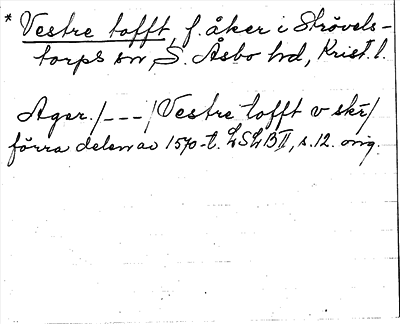 * Vestre tofft, f. åker i Strövels-
torps sn, S. Åsbo hd, Krist. l.
Ager. /---/ Vestre tofft v skr/
förra delen av 1570-t. LSLB II, s. 12. orig.